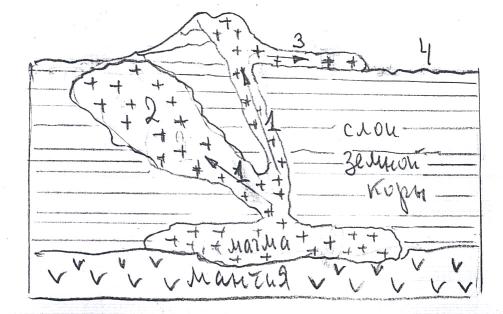 3
4
2
1
слои
земной
коры
1
магма
мантия